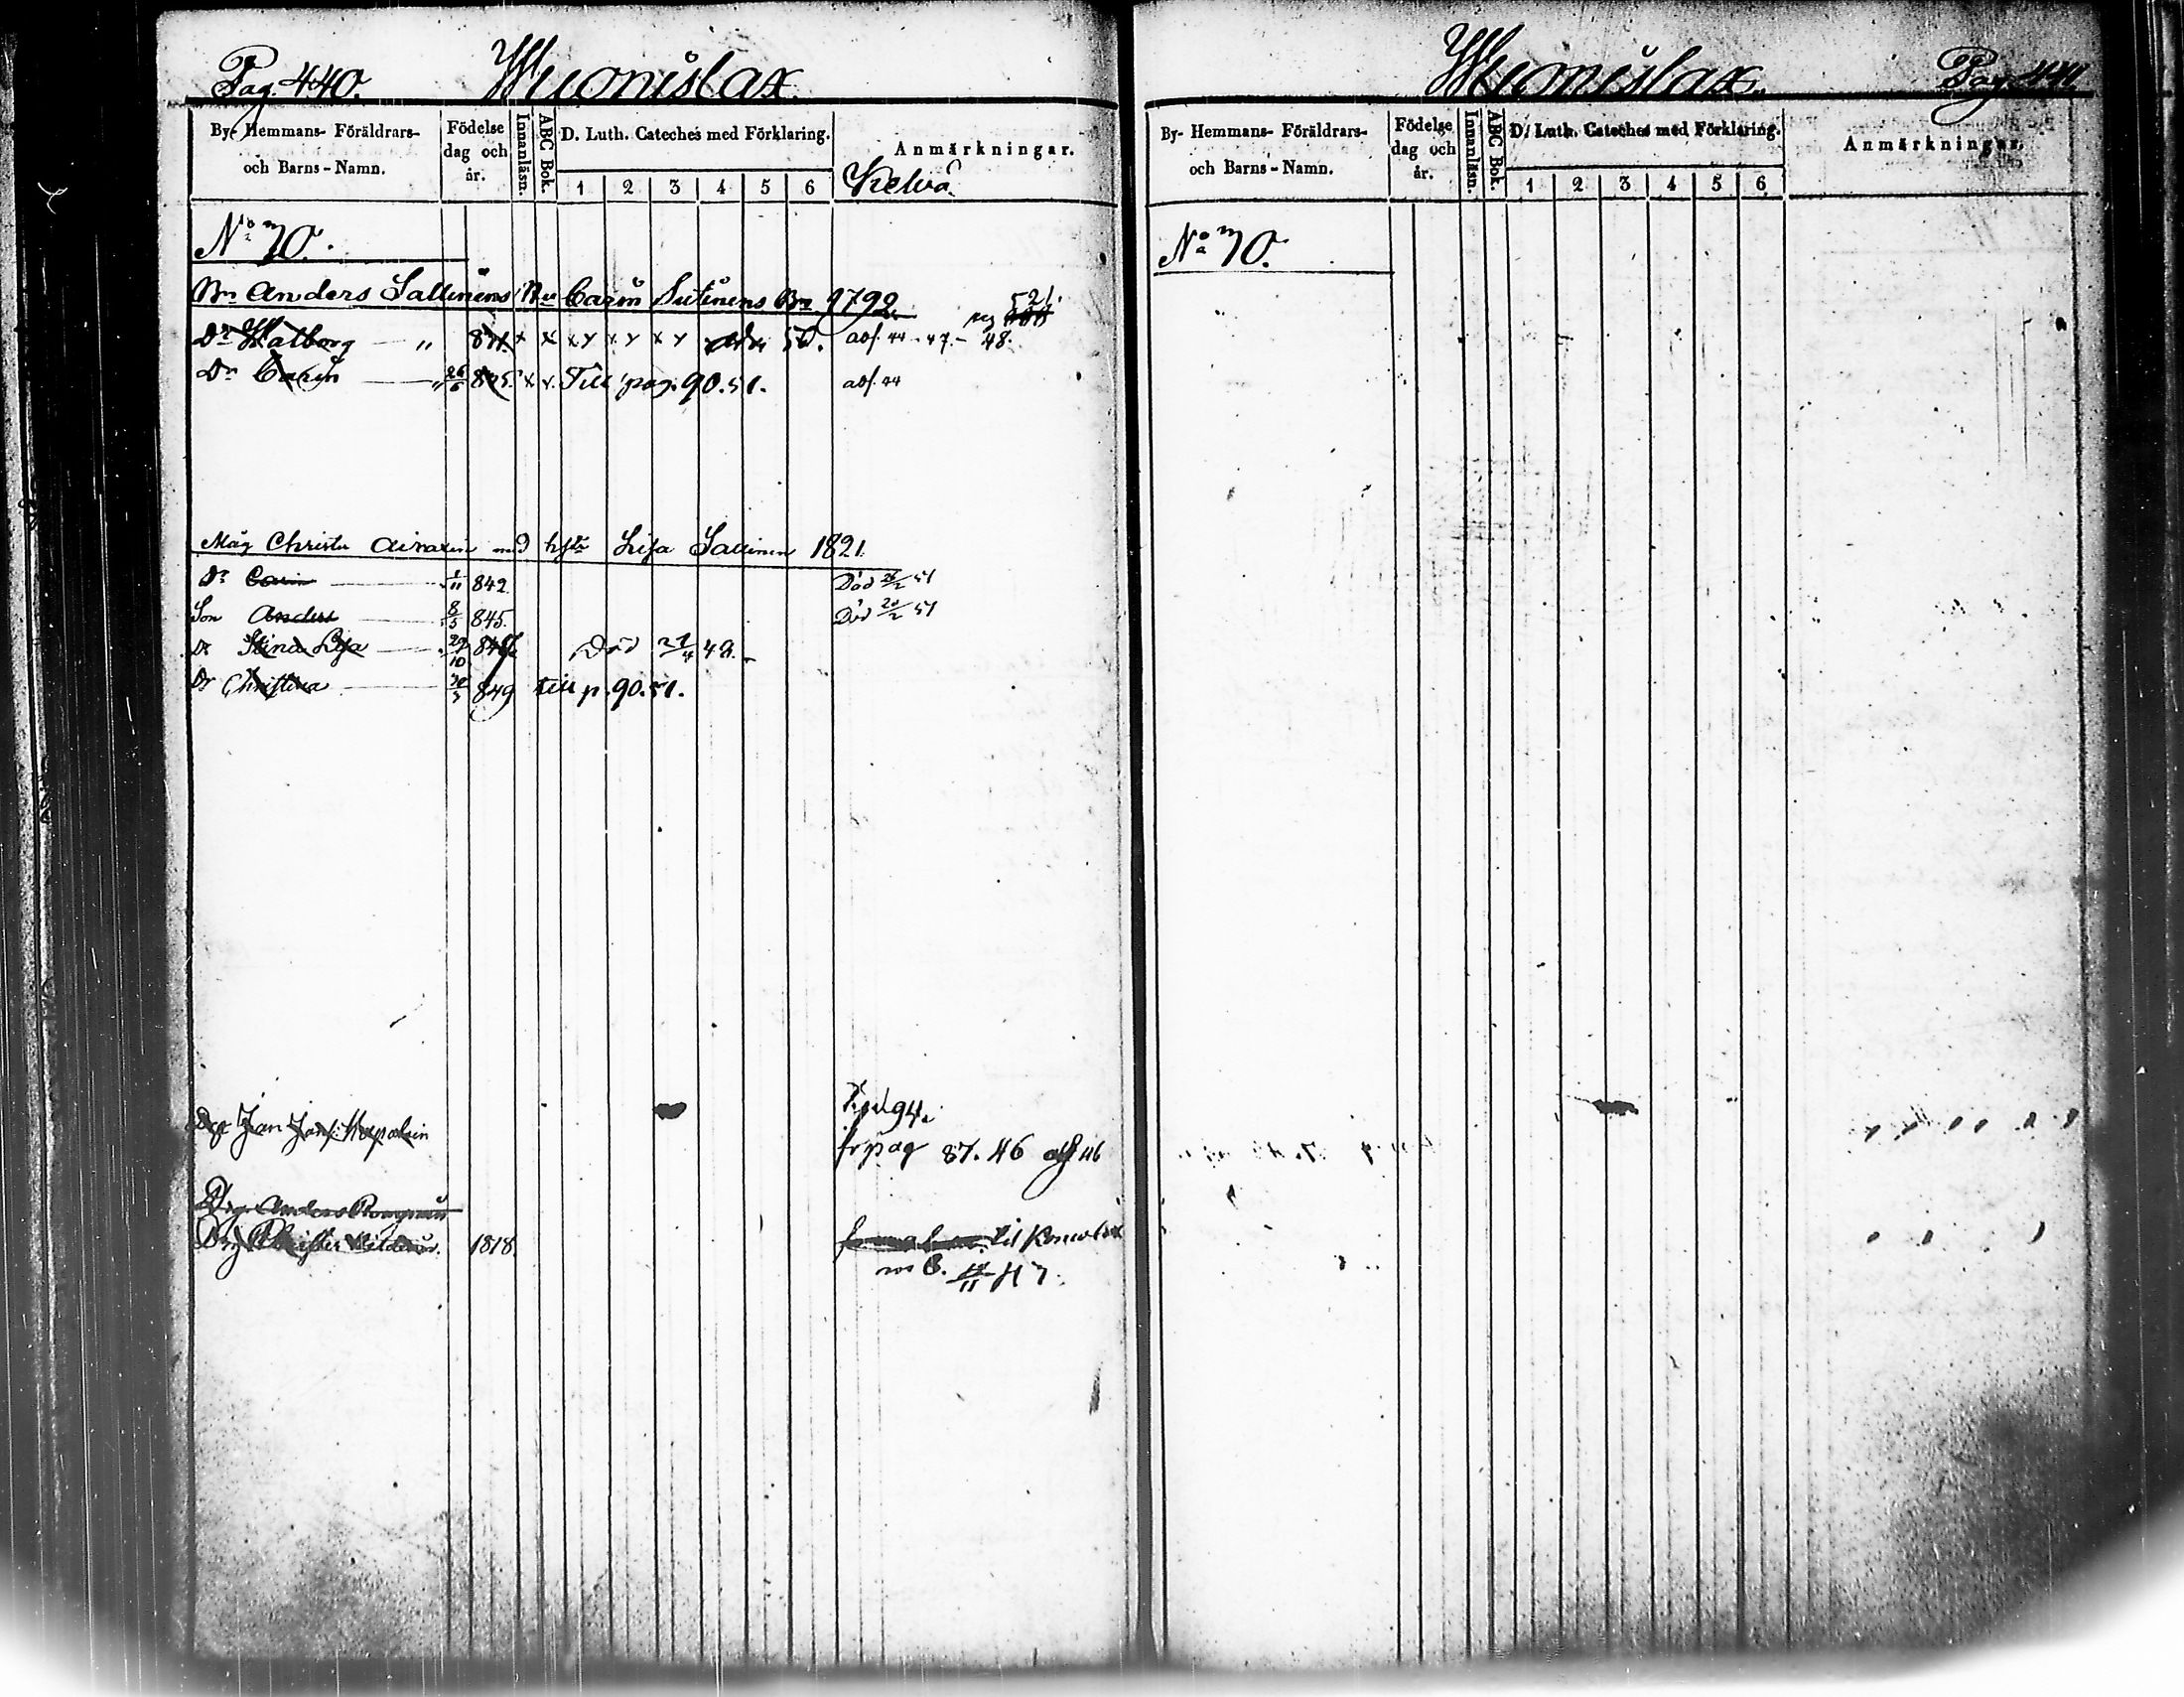 Pag. 440. Wuonislax
By- Hemmans- Föräldrars- och Barns-Namn.
Födelse dag och år.
Innanläsn.
ABC Bok.
D. Luth. Cateches med Förklaring.
1 2 3 4 5 6
Anmärkningar.
Kelvå
No 70.
Bn Anders Sallinens Carin Sutinens 1792
521.
Dr Walborg " 831 x x x y x y x y 50. abs. 44 - 47 - 48.
Dr Carin " 26/6 835 x x. Till pag. 90. 51. abs. 44
Måg Christer med hst Lisa Sallinen 1821
Dr Carin 1/11 842. Död 26/2 51
Son Anders 8/5 845. Död 20/2 51
Dr Stina Lisa 29/10 Död 27/4 48.
Dr Christina 30/3 849 till p. 90. 51.
94.
Drg Jan
fr pag 87. 46 abs 46
Drg Anders
Drg 1818 till
11 47.
Wuonislax. Pag. 441
By- Hemmans- Föräldrars- och Barns-Namn.
Födelse dag och år.
Innanläsn.
ABC Bok.
D. Luth. Cateches med Förklaring.
1 2 3 4 5 6
Anmärkningar.
No 70.